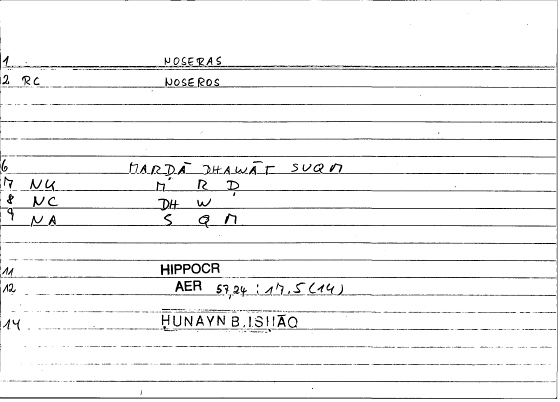 1 NOSERAS
2 RC NOSEROS
6 MARḌĀ DHAWĀT SUQM
7 NU M R Ḍ
8 NC DH W
9 NA S Q M
11 HIPPOCR
12 AER 57,24 : 17,5 (14)
14 ḤUNAYN B. ISḤĀQ